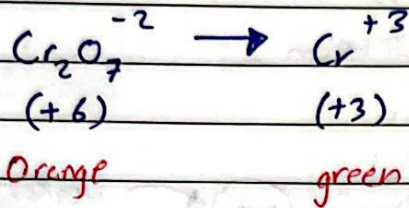 Cr₂O₇⁻² → Cr⁺³
(+6) (+3)
Orange green